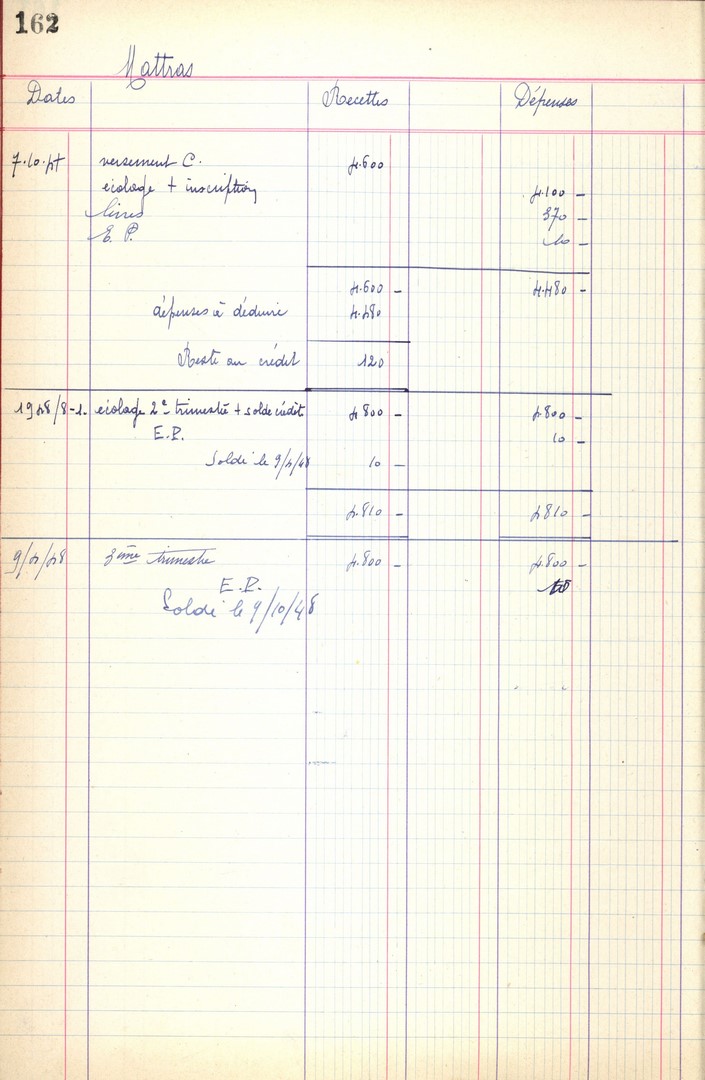 162
Mattras
Dates Recettes Dépenses
7.10.47 versement C. 4.600
écolage + inscription 4.100 -
livres 370 -
E. P. 10 -
4.600 - 4.480 -
dépenses à déduire 4.480
Reste au crédit 120
1948/8-1. écolage 2e trimestre + solde crédit 4.800 - 4.800 -
E.P. 10 -
Solde le 9/4/48 10 -
4.810 - 4.810 -
9/4/48 3ème trimestre 4.800 - 4.800 -
E.P. 10
Solde le 9/10/48